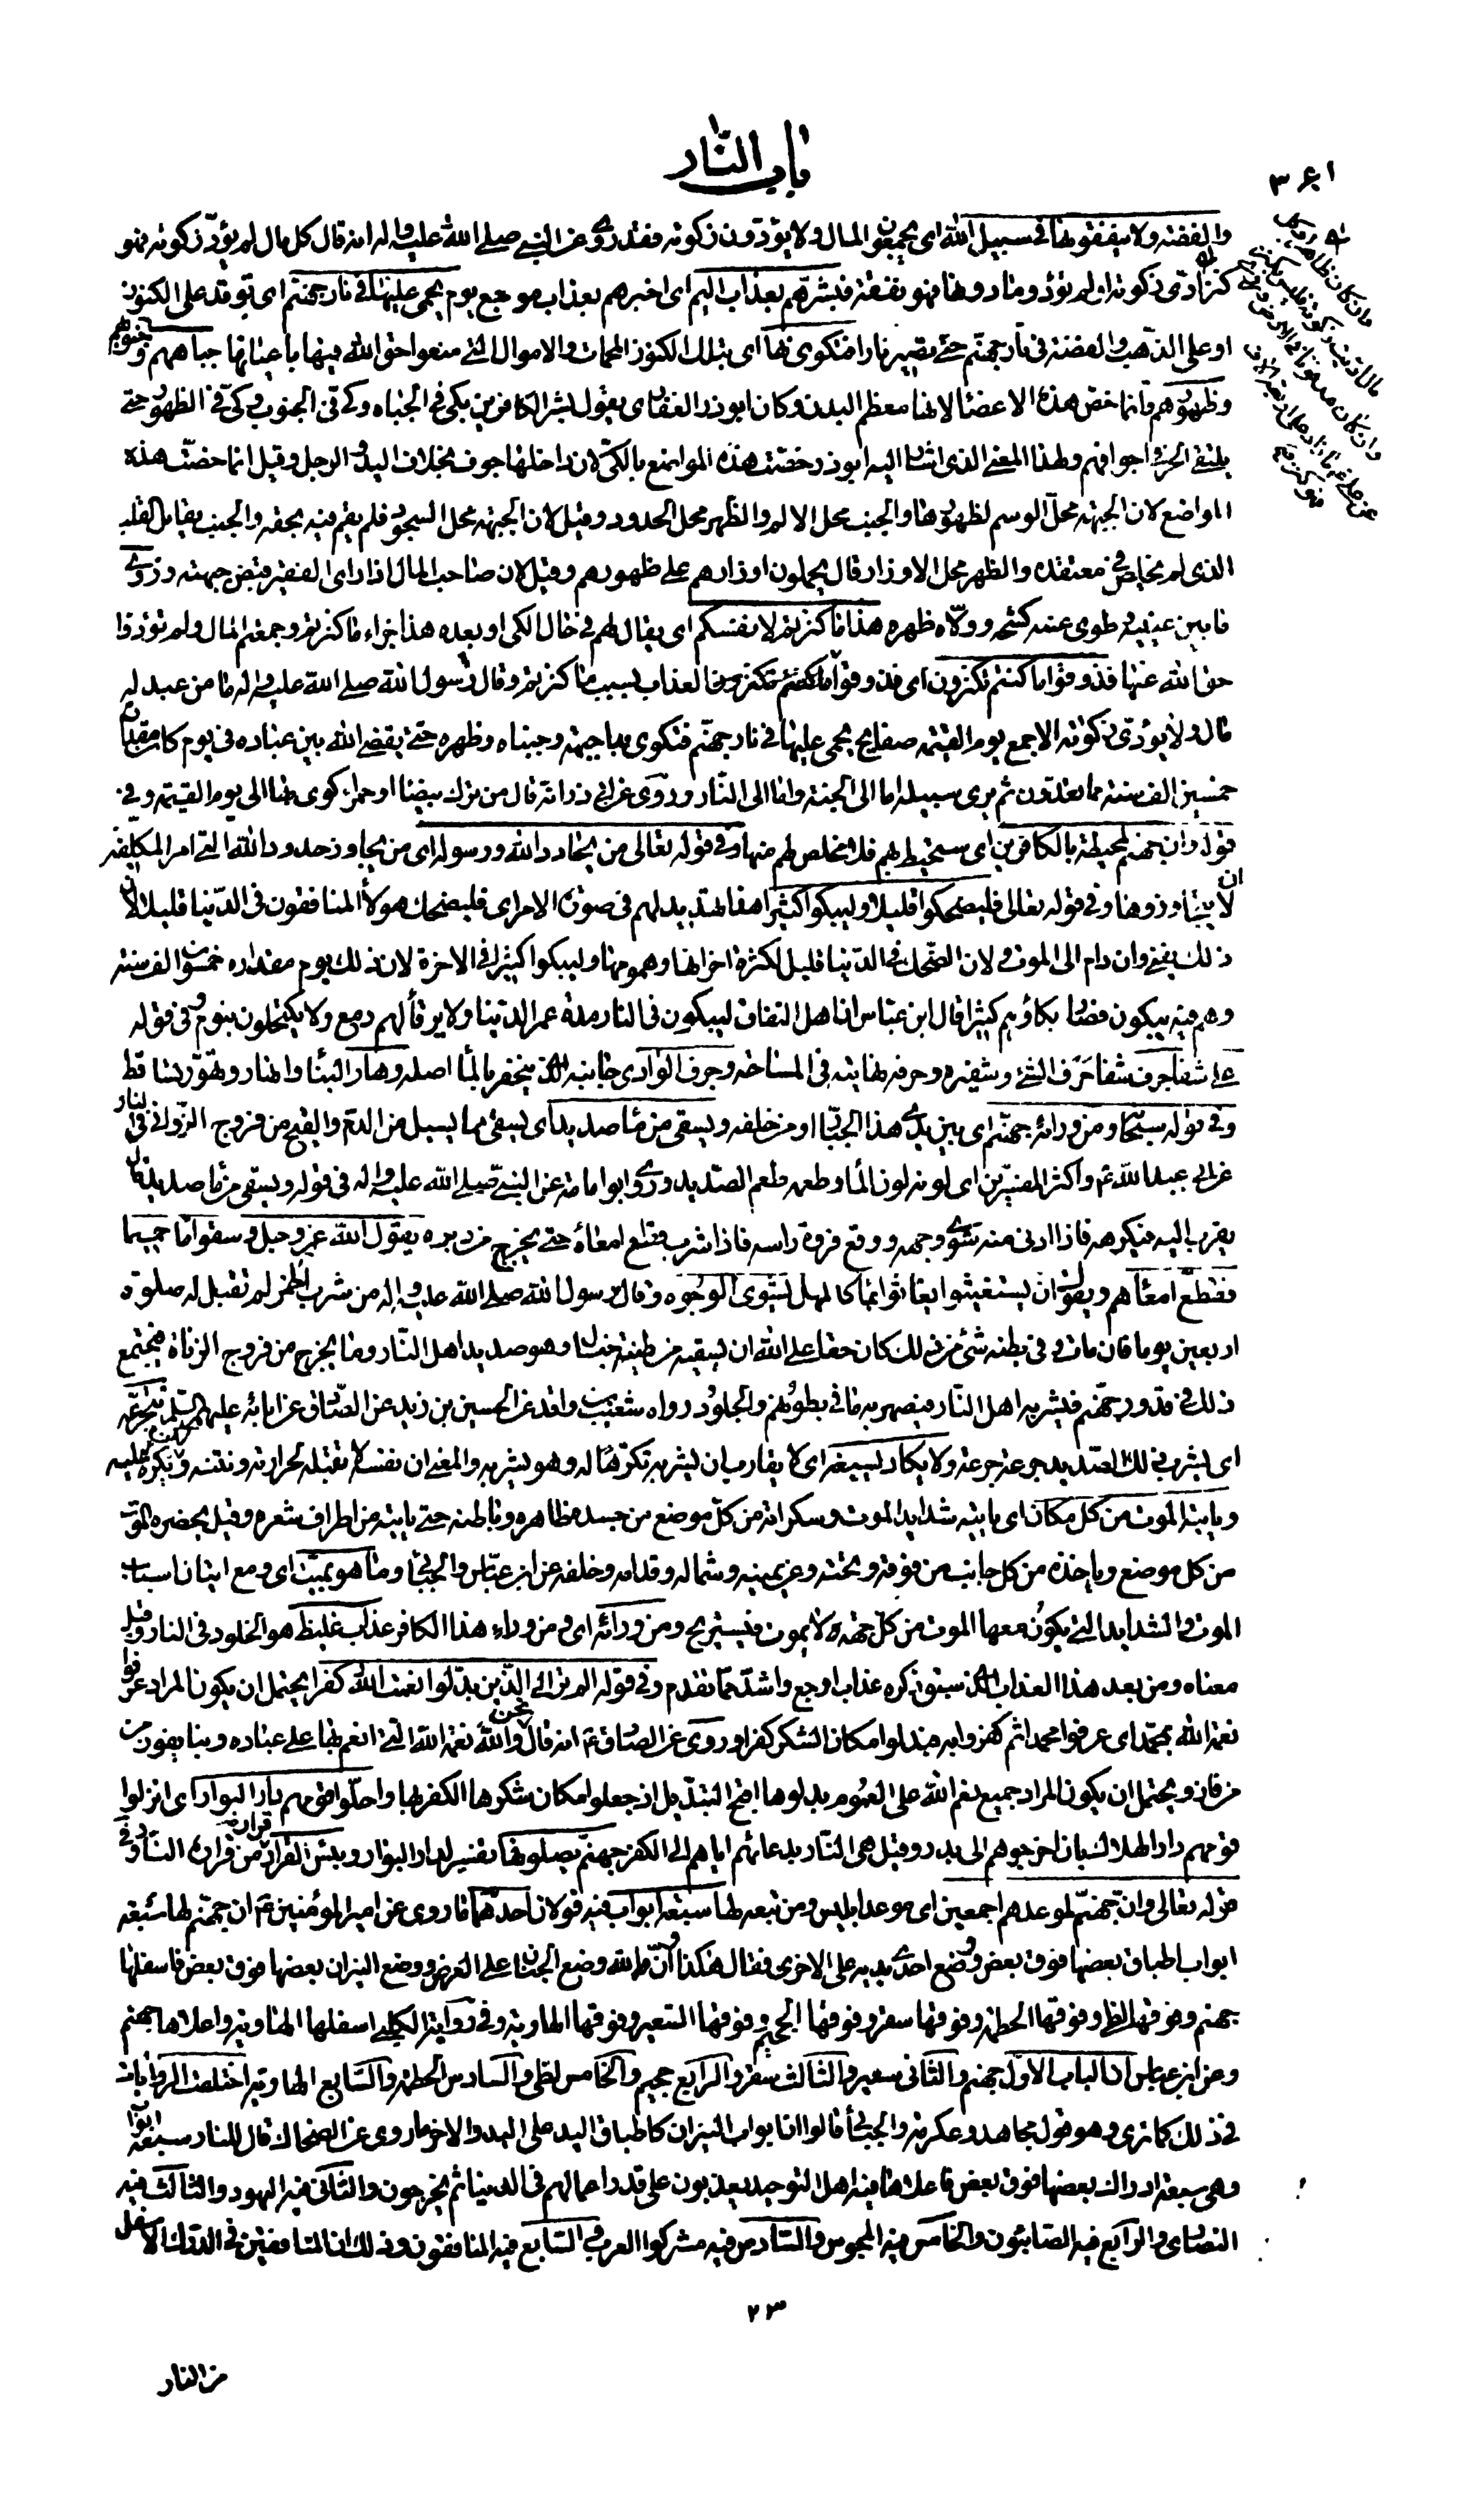 باب النار
٣٤١
والفضة ولا ينفقونها في سبيل الله اى يجمعون المال ولا يؤدون زكوته فقد روى عن النبي صلى الله عليه واله انه قال كل مال لم يؤدّ زكوته فهو
كنز ادّى زكوته او لم يؤد وما دونها فهو نفقة فبشّرهم بعذاب اليم اى اخبرهم بعذاب موجع يوم يحمى عليها في نار جهنم اى توقد على الكنوز
او على الذهب والفضة في نار جهنم حتى تصير نارا فتكوى بها اى بتلك الكنوز المحمات والاموال التي منعوا حق الله فيها باعيانها جباههم وجنوبهم
وظهورهم وانما خص هذه الاعضاء لانها معظم البدن وكان ابوذر الغفارى يقول بشر الكافرين بكي في الجباه وكي في الجنوب وكيّ في الظهور حتى
يلتقى الحر في اجوافهم ولهذا المعنى الذى اشار اليه ابوذر خصت هذه المواضع بالكيّ لان داخلها جوف بخلاف اليد والرجل وقيل انما خصّت هذه
المواضع لان الجبهة محلّ الوسم لظهورها والجنب محل الالم والظهر محل الحدود وقيل لان الجبهة محل السجود فلم يقم فيه بحقه والجنب يقابل القلب
الذى لم يخلص في معتقده والظهر محل الاوزار قال يحملون اوزارهم على ظهورهم وقيل لان صاحب المال اذا راى الفقير قبض جبهته وزوى
ما بين عينيه وطوى عنه كشحه وولاّه ظهره هذا ما كنزتم لانفسكم اى يقال لهم في حال الكى او بعده هذا جزاء ما كنزتم وجمعتم المال ولم تؤدوا
حق الله عنها فذوقوا ما كنتم تكنزون اى فذوقوا العذاب بسبب ما كنزتم وقال رسول الله صلى الله عليه واله ما من عبد له
مال ولا يؤدّى زكوته الا جمع يوم القيمة صفايح يحمى عليها في نار جهنّم فتكوى بها جبهته وجنباه وظهره حتى يقضى الله بين عباده في يوم كان مقداره
خمسين الف سنة مما تعدّون ثم يرى سبيله اما الى الجنة واما الى النّار وروى عن ابى ذر انه قال من ترك بيضاء او حمراء كوى بها الى يوم القيمة وفى
قوله وان جهنم لمحيطة بالكافرين اى ستحيط بهم فلا مخلص لهم منها وفى قوله تعالى من يحادد الله ورسوله اى من يجاوز حدود الله التي امر المكلفين
ان لا يتجاوزوها وفى قوله تعالى فليضحكوا قليلا وليبكوا كثيرا هذا تهديد لهم في صورة الامر اى فليضحك هولاء المنافقون في الدّنيا قليلا لانّ
ذلك يفنى وان دام الى الموت ولان الضّحك في الدّنيا قليل لكثرة احزانها وهمومها وليبكوا كثيرا في الاخرة لان ذلك يوم مقداره خمسون الف سنة
وهم فيه يبكون فصار بكاؤهم كثيرا قال ابن عباس ان اهل النفاق ليبكون في النار مدة عمر الدنيا ولا يرقأ لهم دمع ولا يكتحلون بنوم وفى قوله
على شفا جرف شفا جرف الشئ وشفيره وحرفه نهايته في المساحة وجرف الوادى جانبه الذى ينحفر بالماء اصله وهار البناء وانهار وتهوّر تساقط
وفى قوله سبحانه ومن ورائه جهنم اى بين يدى هذا الجبّار او من خلفه ويسقى من ماء صديد اى يسقى مما يسيل من الدم والقيح من فروج الزّوانى في النار
عن ابى عبد الله ع واكثر المفسّرين اى لونه لون الماء وطعمه طعم الصّديد وروى ابو امامة عن النبي صلى الله عليه واله في قوله ويسقى من ماء صديد قال
يقرب اليه فيكرهه فاذا ادنى منه شوى وجهه ووقع فروة راسه فاذا شرب قطع امعاءه حتى يخرج من دبره يقول الله عز وجل وسقوا ماء حميما
فقطع امعاءهم ويقول وان يستغيثوا يغاثوا بماء كالمهل يشوى الوجوه وقال رسول الله صلى الله عليه واله من شرب الخمر لم تقبل له صلوة
اربعين يوما فان مات وفى بطنه شئ من ذلك كان حقا على الله ان يسقيه من طينة خبال وهو صديد اهل النّار وما يخرج من فروج الزناة فيجتمع
ذلك في قدور جهنّم فيشربه اهل النّار فيصهر به ما في بطونهم والجلود رواه شعيب بن واقد عن الحسين بن زيد عن الصّادق عن ابائه عليهم السّلم يتجرّعه
اى يشرب ذلك الصّديد جرعة جرعة ولا يكاد يسيغه اى لا يقارب ان يشربه تكرّها له وهو يشربه والمعنى ان نفسه لا تقبله لحرارته ونتنه ويكره عليه
وياتيه الموت من كل مكان اى ياتيه شدايد الموت وسكراته من كل موضع من جسده ظاهره وباطنه حتى ياتيه من اطراف شعره وقيل يحضره الموت
من كل موضع وياخذه من كل جانب من فوقه وتحته وعن يمينه وشماله وقدامه وخلفه عن ابن عبّاس والجبّائى وما هو بميّت اى ومع اتيان اسباب
الموت والشدايد التي يكون معها الموت من كل جهة لا يموت فيستريح ومن ورائه اى ومن وراء هذا الكافر عذاب غليظ هو الخلود في النار وقيل
معناه ومن بعد هذا العذاب الذى سبق ذكره عذاب اوجع واشد مما تقدم وفى قوله الم تر الى الّذين بدّلوا نعمت الله كفرا يحتمل ان يكون المراد عرفوا
نعمة الله بمحمّد اى عرفوا محمدا ثم كفروا به فبدلوا مكان الشكر كفرا وروى عن الصادق ع انه قال نحن والله نعمة الله التي انعم بها على عباده وبنا يفوز من
فاز ويحتمل ان يكون المراد جميع نعم الله على العموم بدلوها اقبح التبديل اذ جعلوا مكان شكرها الكفر بها واحلّوا قومهم دار البوار اى انزلوا
قومهم دار الهلاك بان اخرجوهم الى بدر وقيل هى النّار بدعائهم اياهم الى الكفر جهنّم يصلونها تفسير لدار البوار وبئس القرار من قراره النار وفى
قوله تعالى وان جهنّم لموعدهم اجمعين اى موعد ابليس ومن تبعه لها سبعة ابواب فيه قولان احدهما ما روى عن امير المؤمنين ع ان جهنّم لها سبعة
ابواب اطباق بعضها فوق بعض ووضع احدى يديه على الاخرى فقال هكذا وانّ الله وضع الجنان على العرض ووضع النيران بعضها فوق بعض فاسفلها
جهنم وفوقها لظى وفوقها الحطمة وفوقها سقر وفوقها الجحيم وفوقها السّعير وفوقها الهاوية وفى رواية الكلبى اسفلها الهاوية واعلاها جهنم
وعن ابن عباس ان الباب الاول جهنم والثانى سعير والثالث سقر والرابع جحيم والخامس لظى والسادس الحطمة والسّابع الهاوية اختلفت الروايات
في ذلك كما ترى وهو قول مجاهد وعكرمة والجبائى قالوا ان ابواب النيران كاطباق اليد على اليد والاخر ما روى عن الضحاك قال للنار سبعة ابواب
وهى سبعة ادراك بعضها فوق بعض فاعلاها فيه اهل التوحيد يعذبون على قدر اعمالهم في الدنيا ثم يخرجون والثانى فيه اليهود والثالث فيه
النصارى والرابع فيه الصّابئون والخامس فيه المجوس والسّادس فيه مشركوا العرب والسّابع فيه المنافقون وذلك ان المنافقين في الدرك الاسفل
٢٣
من النار